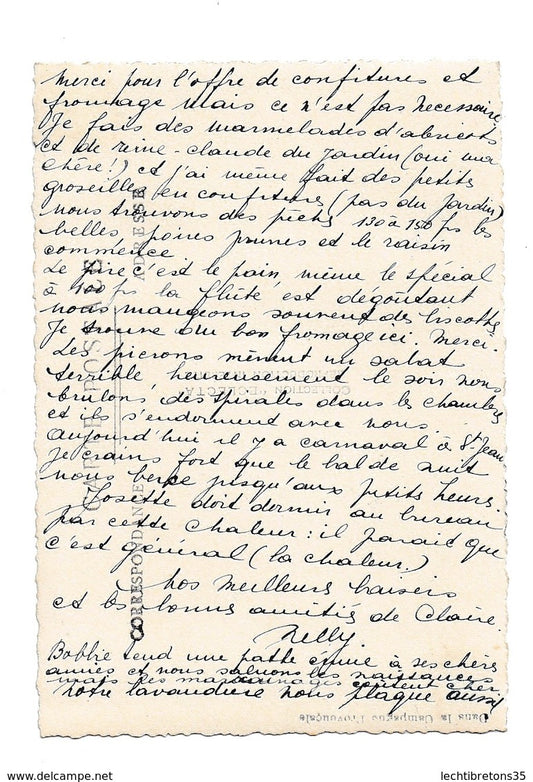 Merci pour l'offre de confitures et
fromage mais ce n'est pas necessaire
Je fais des marmelades d'abricots
et de reine-claude du jardin (oui ma
chère!) et j'ai même fait des petits
groseilles en confitures (pas du jardin)
nous trouvons des pêches 130 à 150 frs les
belles, poires prunes et le raisin
commence
Le pire c'est le pain, même le spécial
à 100 frs la flûte est dégoûtant
nous mangeons souvent des biscottes
Je trouve du bon fromage ici. Merci.
Les picrons mènent un sabat
terrible, heureusement le soir nous
brulons des spirales dans les chambres
et ils s'endorment avec nous.
aujourd'hui il y a carnaval à St Jean
je crains fort que le bal de nuit
nous berce jusqu'aux petits heures.
Josette doit dormir au bureau
par cette chaleur: il parait que
c'est général (la chaleur.)
Nos meilleurs baisers
et les bonnes amitiés de Claire.
Nelly.
Bobbie tend une patte émue à ses chères
amies et nous saluons les naissances
mais les mariages coutent cher
notre lavandière nous plaque aussi
CARTE POSTALE
CORRESPONDANCE
ADRESSE
COLLECTION "ECLECTA"
Dans la Campagne Provençale
www.delcampe.net
lechtibretons35